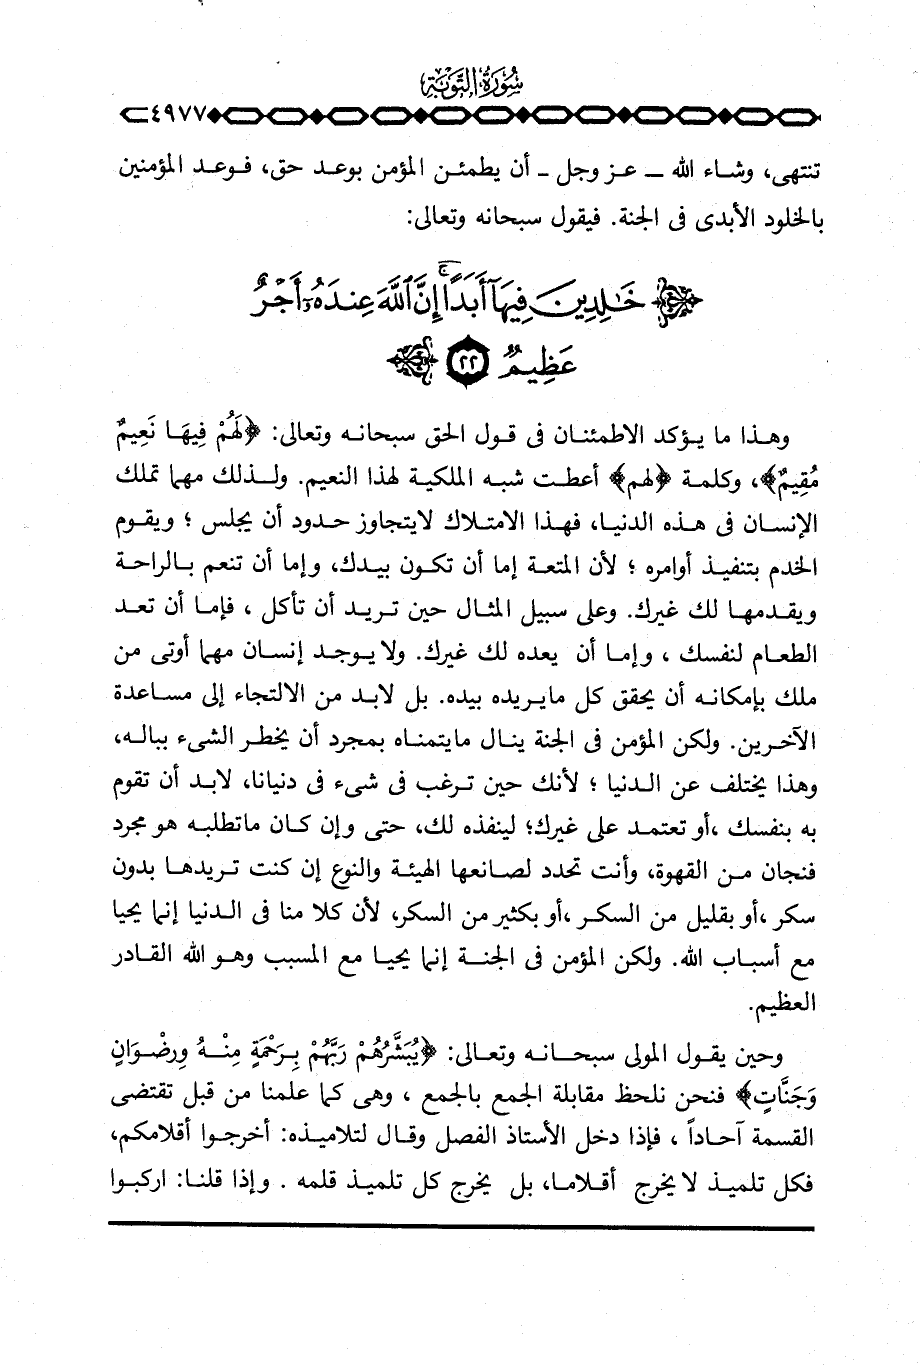 سُورَةُ التَّوْبَةِ
٤٩٧٧
تنتهى، وشاء الله ــ عز وجل ــ أن يطمئن المؤمن بوعد حق، فوعد المؤمنين
بالخلود الأبدى فى الجنة. فيقول سبحانه وتعالى:
خَٰلِدِينَ فِيهَآ أَبَدًا ۚ إِنَّ ٱللَّهَ عِندَهُۥٓ أَجْرٌ
عَظِيمٌ ٢٢
وهذا ما يؤكد الاطمئنان فى قول الحق سبحانه وتعالى: ﴿لَهُمْ فِيهَا نَعِيمٌ
مُقِيمٌ﴾، وكلمة ﴿لهم﴾ أعطت شبه الملكية لهذا النعيم. ولذلك مهما تملك
الإنسان فى هذه الدنيا، فهذا الامتلاك لايتجاوز حدود أن يجلس ؛ ويقوم
الخدم بتنفيذ أوامره ؛ لأن المتعة إما أن تكون بيدك، وإما أن تنعم بالراحة
ويقدمها لك غيرك. وعلى سبيل المثال حين تريد أن تأكل ، فإما أن تعد
الطعام لنفسك ، وإما أن يعده لك غيرك. ولا يوجد إنسان مهما أوتى من
ملك بإمكانه أن يحقق كل مايريده بيده. بل لابد من الالتجاء إلى مساعدة
الآخرين. ولكن المؤمن فى الجنة ينال مايتمناه بمجرد أن يخطر الشىء بباله،
وهذا يختلف عن الدنيا ؛ لأنك حين ترغب فى شىء فى دنيانا، لابد أن تقوم
به بنفسك ،أو تعتمد على غيرك؛ لينفذه لك، حتى وإن كان ماتطلبه هو مجرد
فنجان من القهوة، وأنت تحدد لصانعها الهيئة والنوع إن كنت تريدها بدون
سكر ،أو بقليل من السكر ،أو بكثير من السكر، لأن كلا منا فى الدنيا إنما يحيا
مع أسباب الله. ولكن المؤمن فى الجنة إنما يحيا مع المسبب وهو الله القادر
العظيم.
وحين يقول المولى سبحانه وتعالى: ﴿يُبَشِّرُهُمْ رَبُّهُمْ بِرَحْمَةٍ مِنْهُ ورِضْوَانٍ
وَجَنَّاتٍ﴾ فنحن نلحظ مقابلة الجمع بالجمع ، وهى كما علمنا من قبل تقتضى
القسمة آحاداً ، فإذا دخل الأستاذ الفصل وقال لتلاميذه: أخرجوا أقلامكم،
فكل تلميذ لا يخرج أقلاما، بل يخرج كل تلميذ قلمه . وإذا قلنا: اركبوا